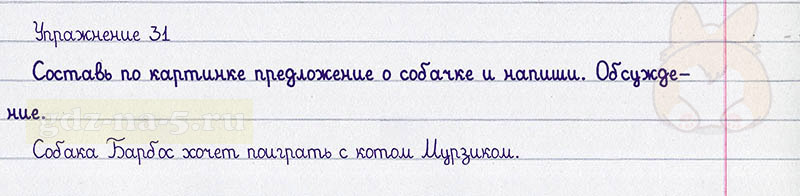 Упражнение 31
Составь по картинке предложение о собачке и напиши. Обсужде-
ние.
gdz-na-5.ru
Собака Барбос хочет поиграть с котом Мурзиком.